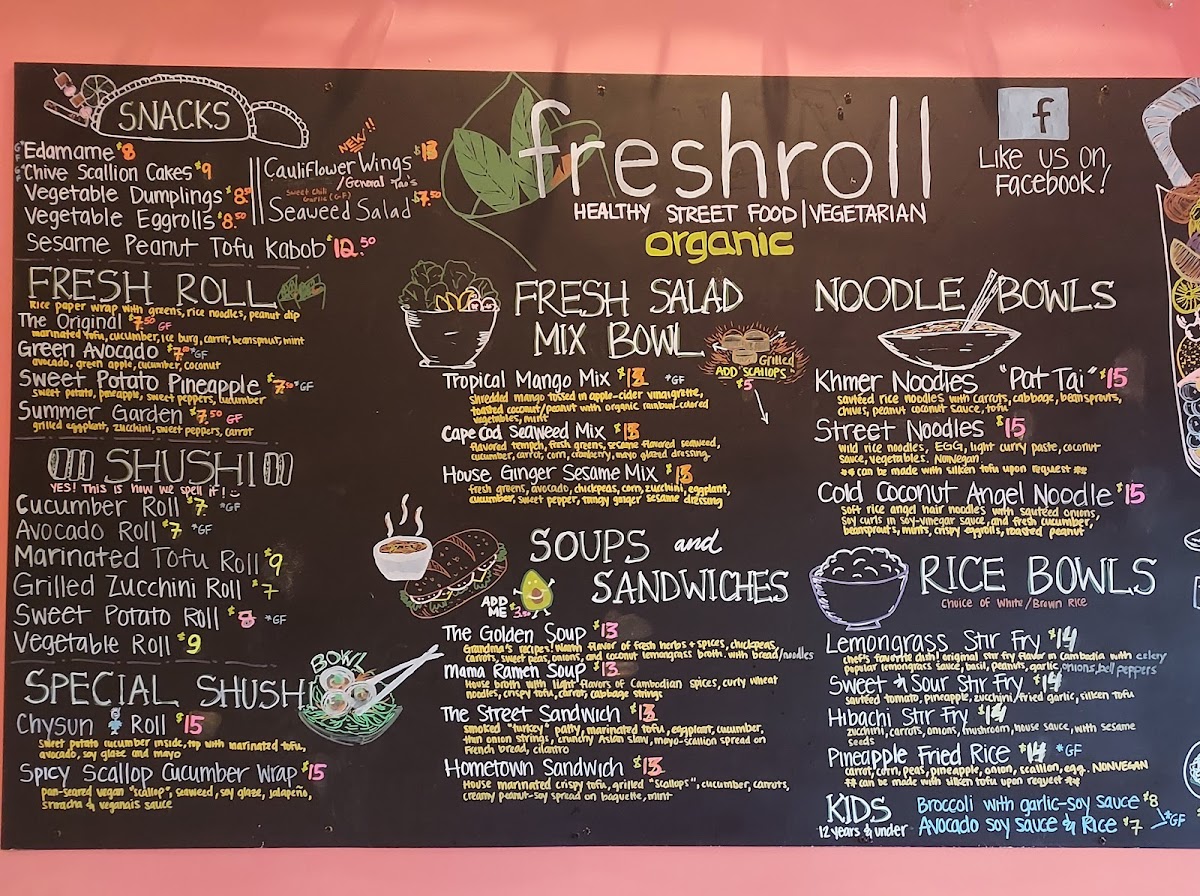 SNACKS
GF Edamame $8
GF Chive Scallion Cakes $9
Vegetable Dumplings $8.50
Vegetable Eggrolls $8.50
Sesame Peanut Tofu Kabob $12.50
NEW!!
Cauliflower Wings $13
/General Tao's
Sweet Chili
Garlic (GF)
Seaweed Salad $7.50
freshroll
HEALTHY STREET FOOD | VEGETARIAN
organic
f
Like us on
Facebook!
FRESH ROLL
Rice paper wrap with greens, rice noodles, peanut dip
The Original $7.50 GF
marinated tofu, cucumber, ice burg, carrot, beansprout, mint
Green Avocado $7.00 *GF
avocado, green apple, cucumber, coconut
Sweet Potato Pineapple $7.50 *GF
sweet potato, pineapple, sweet peppers, cucumber
Summer Garden $7.50 GF
grilled eggplant, zucchini, sweet peppers, carrot
SHUSHI
YES! This is how we spell it!
Cucumber Roll $7 *GF
Avocado Roll $7 *GF
Marinated Tofu Roll $9
Grilled Zucchini Roll $7
Sweet Potato Roll *GF
Vegetable Roll $9
SPECIAL SHUSHI
BOWL
Chysun Roll $15
Sweet potato cucumber inside, top with marinated tofu,
avocado, soy glaze and mayo
Spicy Scallop Cucumber Wrap $15
pan-seared vegan "scallop", seaweed, soy glaze, jalapeño,
sriracha & veganais sauce
FRESH SALAD
MIX BOWL
Grilled
ADD "SCALLOPS"
$5
Tropical Mango Mix $13 *GF
shredded mango tossed in apple-cider vinaigrette,
toasted coconut/peanut with organic rainbow-colored
vegetables, mint
Cape Cod Seaweed Mix $13
flavored tempeh, fresh greens, sesame flavored seaweed,
cucumber, carrot, corn, cranberry, mayo glazed dressing.
House Ginger Sesame Mix $13
fresh greens, avocado, chickpeas, corn, zucchini, eggplant,
cucumber, sweet pepper, tangy ginger sesame dressing
SOUPS and
SANDWICHES
ADD
ME $3.50
The Golden Soup $13
Grandma's recipes! Warm flavor of fresh herbs + spices, chickpeas,
carrots, sweet peas, onions, and coconut lemongrass broth. with bread/noodles
Mama Ramen Soup $13
House broth with light flavors of Cambodian spices, curly wheat
noodles, crispy tofu, carrot, cabbage strings
The Street Sandwich $13
smoked "turkey" patty, marinated tofu, eggplant, cucumber,
thin onion strings, crunchy Asian slaw, mayo-scallion spread on
French bread, cilantro
Hometown Sandwich $13
House marinated crispy tofu, grilled "scallops", cucumber, carrots,
creamy peanut-soy spread on baguette, mint
NOODLE BOWLS
Khmer Noodles "Pat Tai" $15
sautéed rice noodles with carrots, cabbage, beansprouts,
chives, peanut coconut sauce, tofu
Street Noodles $15
Wild rice noodles, EGG, light curry paste, coconut
sauce, vegetables. Nonvegan
** can be made with silken tofu upon request **
Cold Coconut Angel Noodle $15
soft rice angel hair noodles with sautéed onions,
Soy curls in soy-vinegar sauce, and fresh cucumber,
beansprouts, mints, crispy eggrolls, roasted peanut
RICE BOWLS
Choice of White/Brown Rice
Lemongrass Stir Fry $14
chef's favorite dish! original stir fry flavor in Cambodia with celery
popular lemongrass sauce, basil, peanuts, garlic, onions, bell peppers
Sweet n Sour Stir Fry $14
sautéed tomato, pineapple, zucchini/fried garlic, silken tofu
Hibachi Stir Fry $14
zucchini, carrots, onions, mushroom, house sauce, with sesame
seeds
Pineapple Fried Rice $14 *GF
carrot, corn, peas, pineapple, onion, scallion, egg. NONVEGAN
** can be made with silken tofu upon request **
KIDS
12 years & under
Broccoli with garlic-soy sauce $8
Avocado soy sauce & Rice $7 *GF